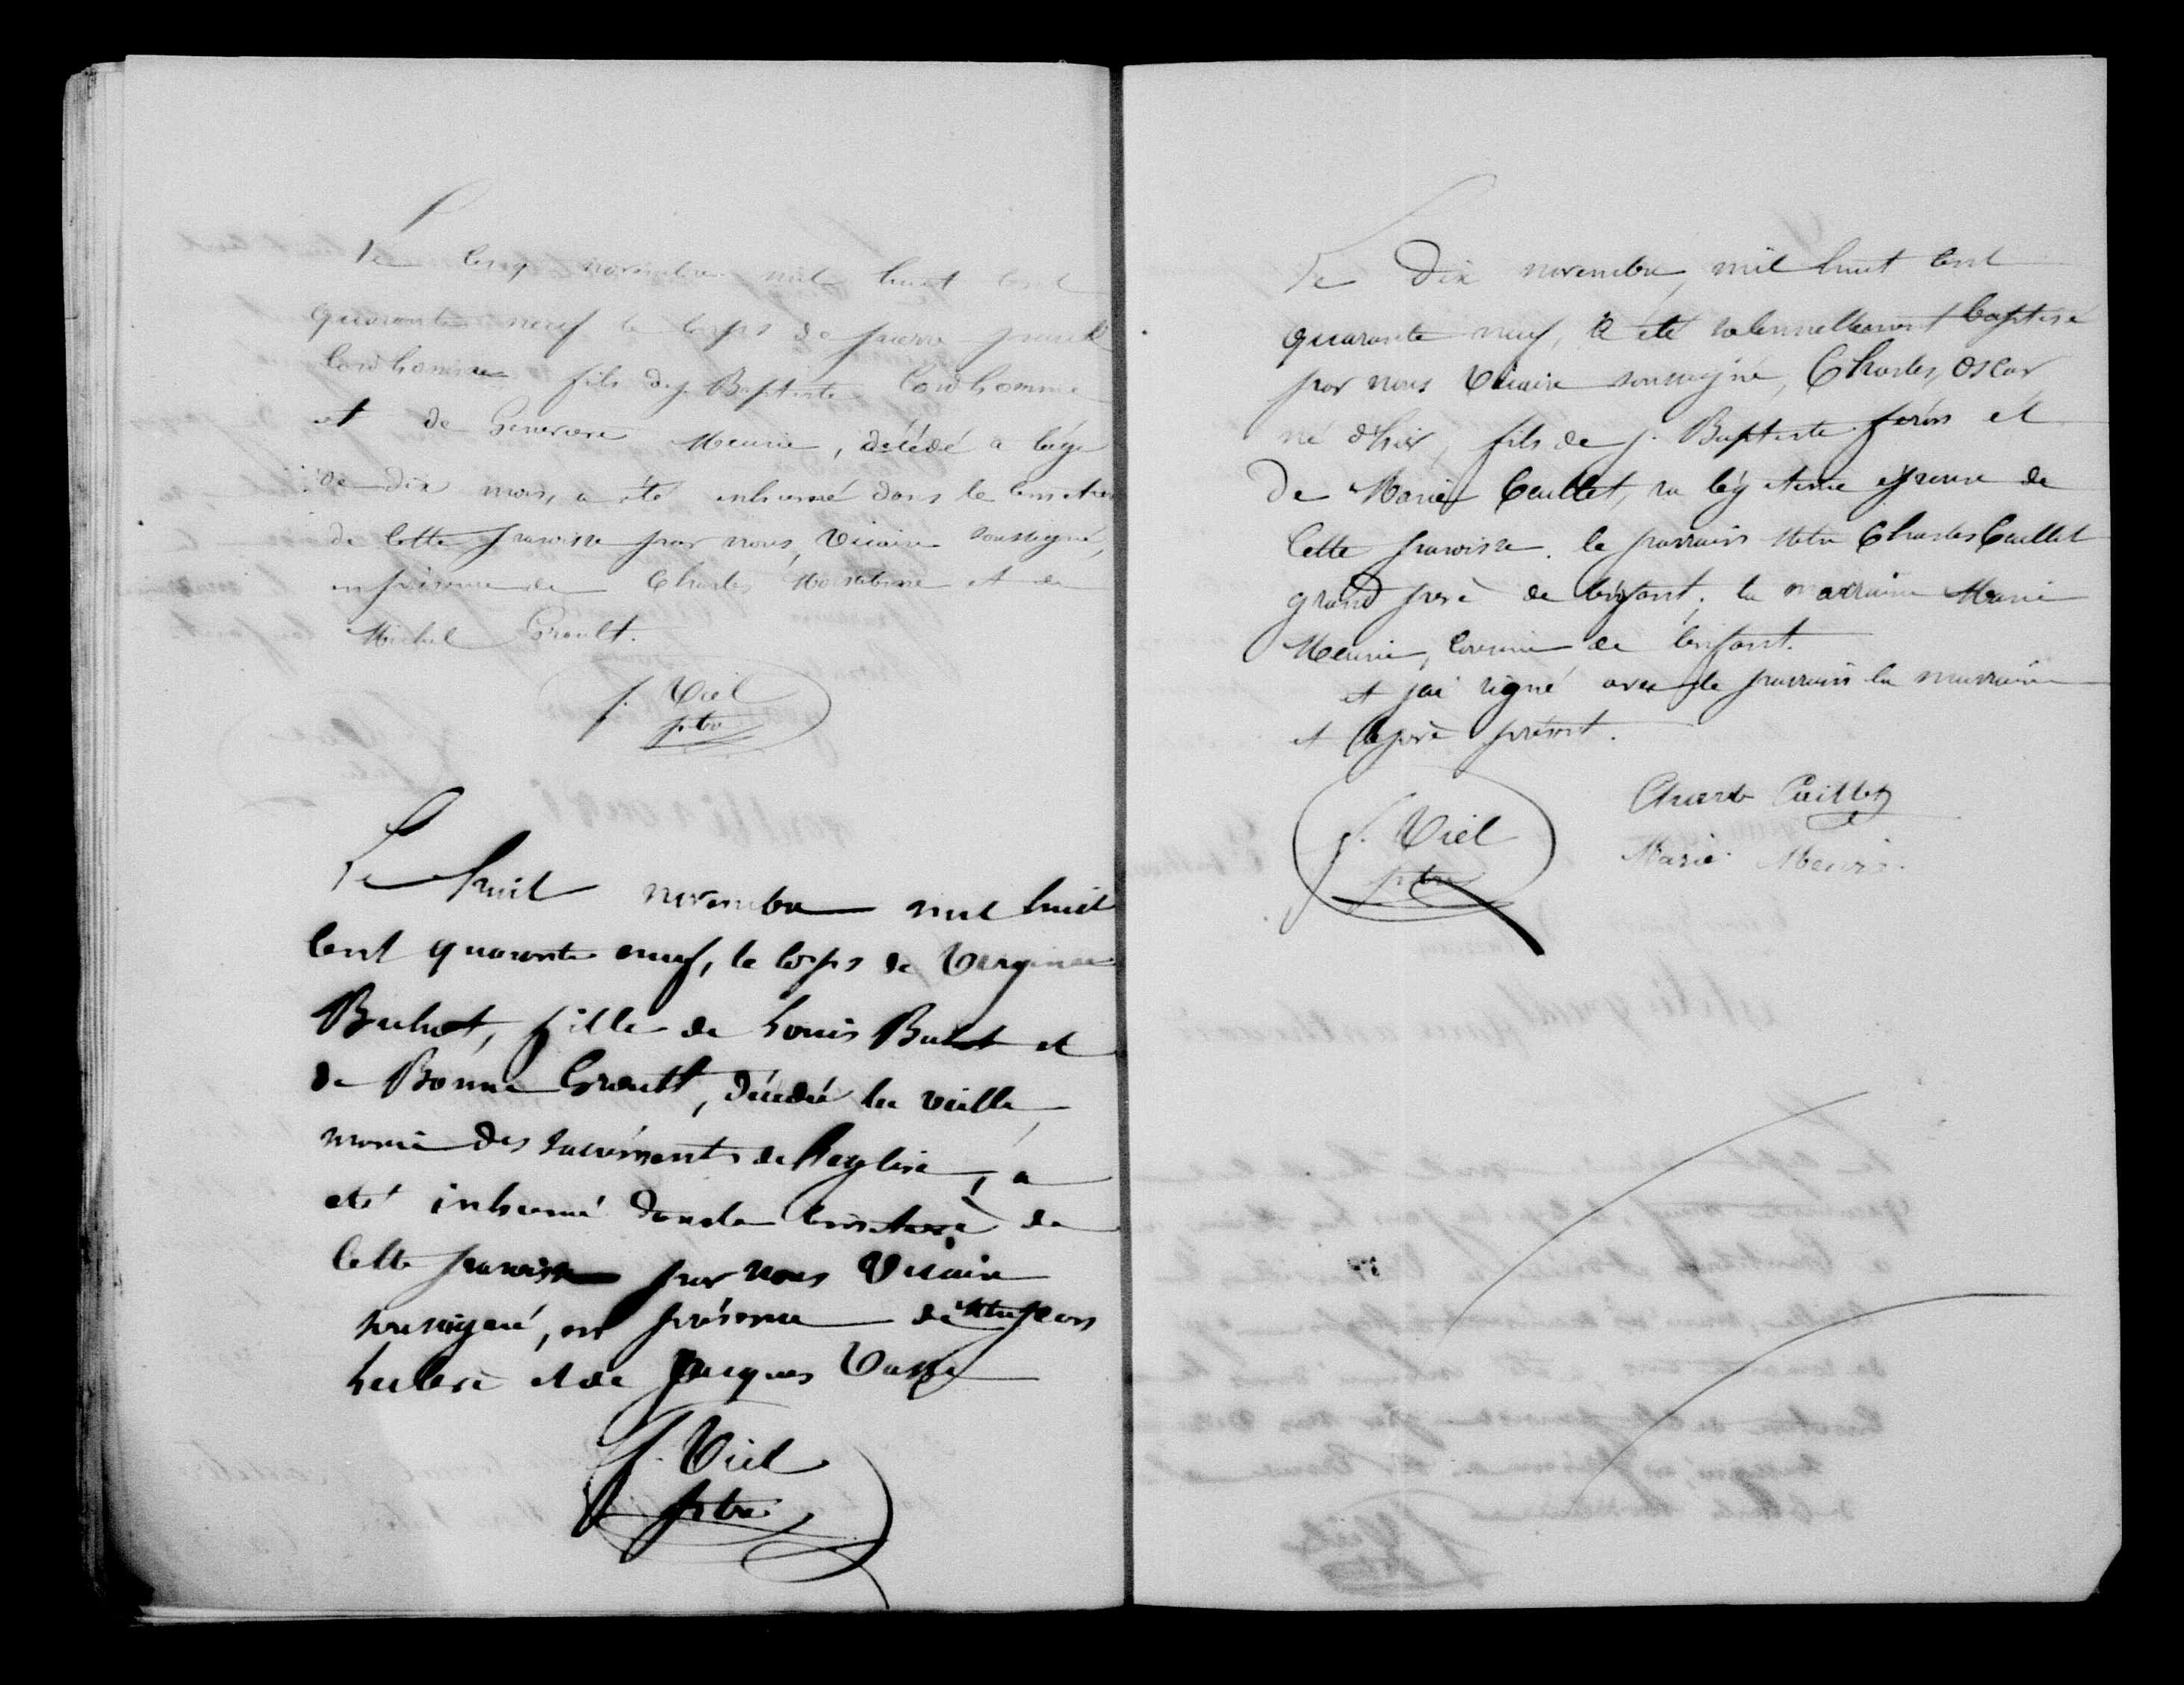 Le cinq novembre mil huit cent
quarante neuf le corps de pierre
fils de j. Baptiste
et de Genevieve Meurie, décédé a l'age
de dix mois, a été inhumé dans le cimetiere
de cette paroisse par nous, Vicaire soussigné,
en présence de Charles et de
Michel Groult.
j. Viel
ptre
Le huit novembre mil huit
cent quarante neuf, le corps de Virginie
Buhot, fille de Louis Buhot et
de Bonne Groult, décédé la veille,
munie des sacréments de l'eglise, a
été inhumé dans le cimetierè de
cette paroisse par nous Vicaire
soussigné, en présence de
et de Jacques
j. Viel
ptre
Le Dix novembre, mil huit cent
quarante neuf, a été solennellement baptisé
par nous Vicaire soussigné, Charles, Oscar
né d'hier, fils de j. Baptiste et
De Marie Caillet, sa légitime épouse de
cette paroisse. le parrain Charles Caillet
grand père de l'enfant; la marraine Marie
Meurie, cousine de l'enfant.
et j'ai signé avec le parrain la marraine
et le père présent.
Charle Caillet
j. Viel
Marie Meurie.
ptre